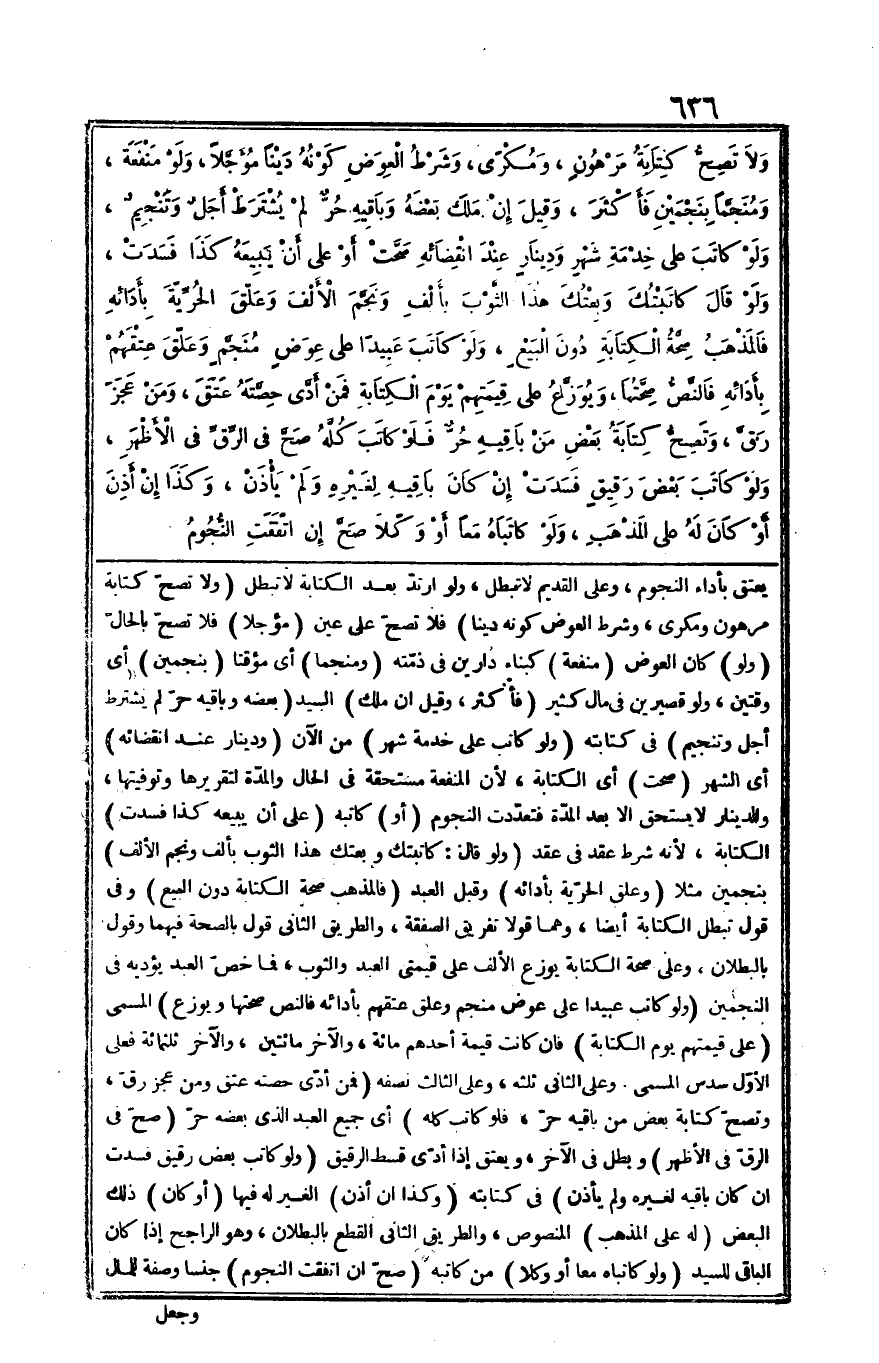 ٦٣٦
وَلاَ تَصِحُّ كِتَابَةُ مَرْهُونٍ ، وَمُكْرًى ، وَشَرْطُ الْعِوَضِ كَوْنُهُ دَيْنًا مُؤَجَّلاً ، وَلَوْ مَنْفَعَةً ،
وَمُنَجَّمًا بِنَجْمَيْنِ فَأَكْثَرَ ، وَقِيلَ إِنْ مَلَكَ بَعْضَهُ وَبَاقِيهِ حُرٌّ لَمْ يُشْتَرَطْ أَجَلٌ وَتَنْجِيمٌ ،
وَلَوْ كَاتَبَ على خِدْمَةِ شَهْرٍ وَدِينَارٍ عِنْدَ انْقِضَائِهِ صَحَّتْ أَوْ على أَنْ يَبِيعَهُ كَذَا فَسَدَتْ ،
وَلَوْ قَالَ كَاتَبْتُكَ وَبِعْتُكَ هٰذَا الثَّوْبَ بِأَلْفٍ وَنَجَّمَ الْأَلْفَ وَعَلَّقَ الحُرِّيَّةَ بِأَدَائِهِ
فَالمَذْهَبُ صِحَّةُ الْكِتَابَةِ دُونَ الْبَيْعِ ، وَلَوْ كَاتَبَ عَبِيدًا على عِوَضٍ مُنَجَّمٍ وَعَلَّقَ عِتْقَهُمْ
بِأَدَائِهِ فَالنَّصُّ صِحَّتُهَا ، وَيُوَزَّعُ على قِيمَتِهِمْ يَوْمَ الْكِتَابَةِ فَمَنْ أَدَّى حِصَّتَهُ عَتَقَ ، وَمَنْ عَجَزَ
رَقَّ ، وَتَصِحُّ كِتَابَةُ بَعْضِ مَنْ بَاقِيهِ حُرٌّ فَلَوْ كَاتَبَ كُلَّهُ صَحَّ فى الرِّقِّ فى الْأَظْهَرِ ،
وَلَوْ كَاتَبَ بَعْضَ رَقِيقٍ فَسَدَتْ إِنْ كَانَ بَاقِيهِ لِغَيْرِهِ وَلَمْ يَأْذَنْ ، وَكَذَا إِنْ أَذِنَ
أَوْ كَانَ لَهُ على المَذْهَبِ ، وَلَوْ كَاتَبَاهُ مَعًا أَوْ وَكَّلاَ صَحَّ إِنِ اتَّفَقَتِ النُّجُومُ
يعتق بأداء النجوم ، وعلى القديم لا تبطل ، ولو ارتدّ بعد الكتابة لا تبطل ( ولا تصحّ كتابة
مرهون ومكرى ، وشرط العوض كونه دينا ) فلا تصحّ على عين ( مؤجلا ) فلا تصحّ بالحالّ
( ولو ) كان العوض ( منفعة ) كبناء دارين فى ذمّته ( ومنجما ) أى مؤقتا ( بنجمين ) أى
وقتين ، ولو قصيرين فى مال كثير ( فأكثر ، وقيل ان ملك ) السيد ( بعضه وباقيه حرّ لم يشترط
أجل وتنجيم ) فى كتابته ( ولو كاتب على خدمة شهر ) من الآن ( ودينار عند انقضائه )
أى الشهر ( صحت ) أى الكتابة ، لأن المنفعة مستحقة فى الحال والمدّة لتقريرها وتوفيتها ،
والدينار لا يستحق الا بعد المدّة فتعدّدت النجوم ( أو ) كاتبه ( على أن يبيعه كذا فسدت )
الكتابة ، لأنه شرط عقد فى عقد ( ولو قال : كاتبتك وبعتك هذا الثوب بألف ونجم الألف )
بنجمين مثلا ( وعلق الحرّية بأدائه ) وقبل العبد ( فالمذهب صحة الكتابة دون البيع ) وفى
قول تبطل الكتابة أيضا ، وهما قولا تفريق الصفقة ، والطريق الثانى قول بالصحة فيهما وقول
بالبطلان ، وعلى صحة الكتابة يوزع الألف على قيمتى العبد والثوب ، فما خصّ العبد يؤديه فى
النجمين ( ولو كاتب عبيدا على عوض منجم وعلق عتقهم بأدائه فالنص صحتها ويوزع ) المسمى
( على قيمتهم يوم الكتابة ) فان كانت قيمة أحدهم مائة ، والآخر مائتين ، والآخر ثلثمائة فعلى
الأوّل سدس المسمى . وعلى الثانى ثلثه ، وعلى الثالث نصفه ( فمن أدّى حصته عتق ومن عجز رقّ ،
وتصحّ كتابة بعض من باقيه حرّ ، فلو كاتب كله ) أى جميع العبد الذى بعضه حرّ ( صحّ فى
الرقّ فى الأظهر ) وبطل فى الآخر ، ويعتق إذا أدّى قسط الرقيق ( ولو كاتب بعض رقيق فسدت
ان كان باقيه لغيره ولم يأذن ) فى كتابته ( وكذا ان أذن ) الغير له فيها ( أو كان ) ذلك
البعض ( له على المذهب ) المنصوص ، والطريق الثانى القطع بالبطلان ، وهو الراجح إذا كان
الباقى للسيد ( ولو كاتباه معا أو وكلا ) من كاتبه ( صحّ ان اتفقت النجوم ) جنسا وصفة للمال
وجعل